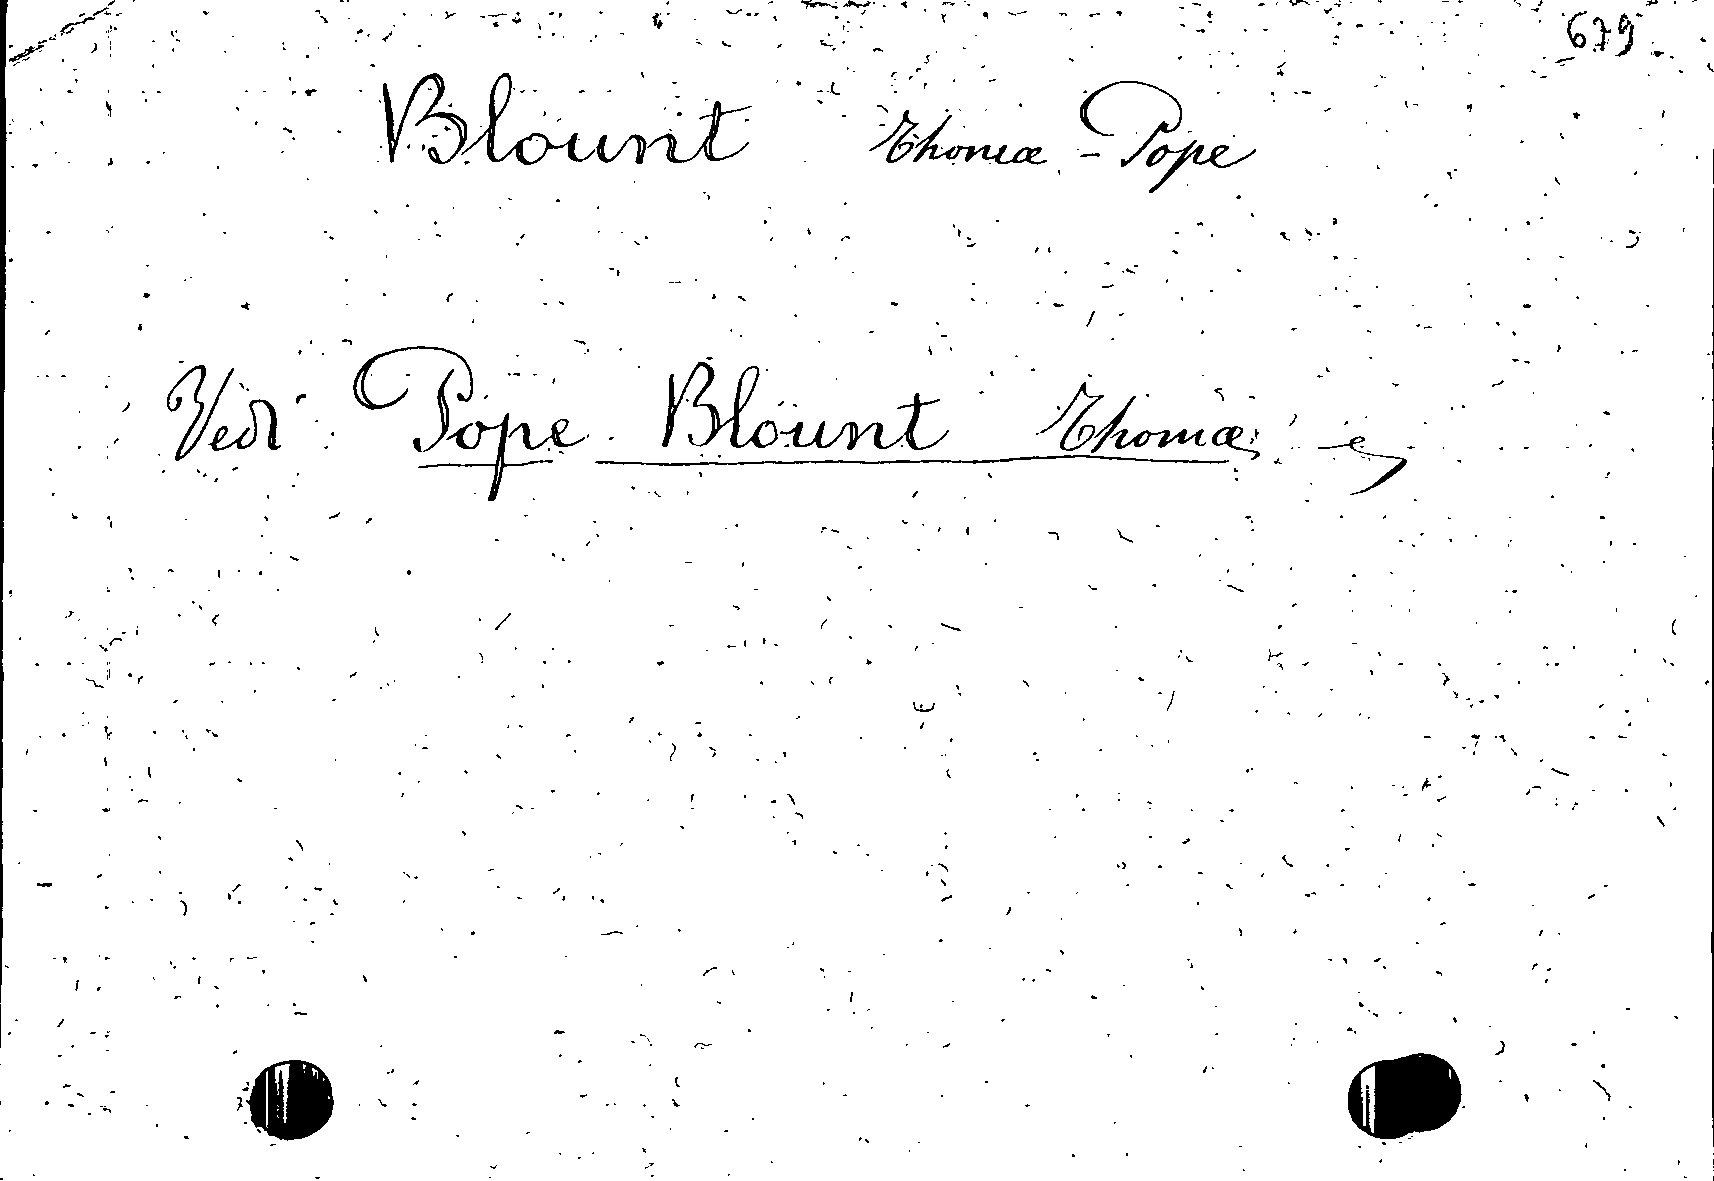 679
Blount Thomæ - Pope
Vedi Pope Blount Thomæ